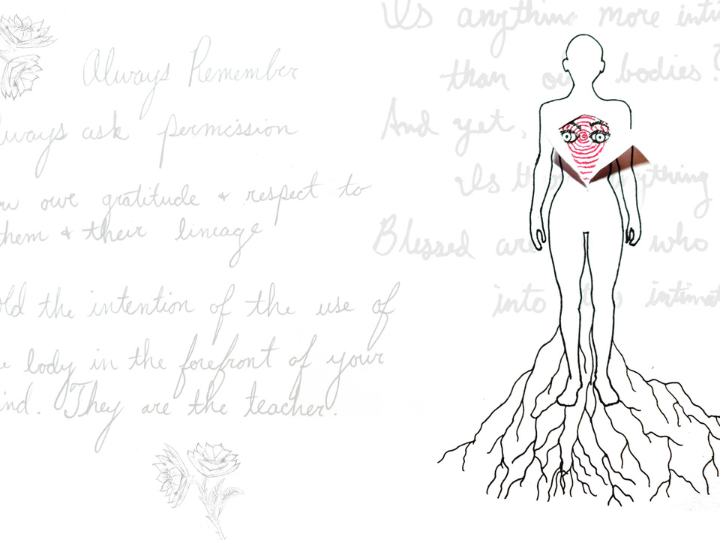 Always Remember
always ask permission
owe gratitude & respect to
them & their lineage
hold the intention of the use of
body in the forefront of your
mind. They are the teacher.
Is anything more
than our bodies?
And yet,
Is
Blessed are who
into intimat